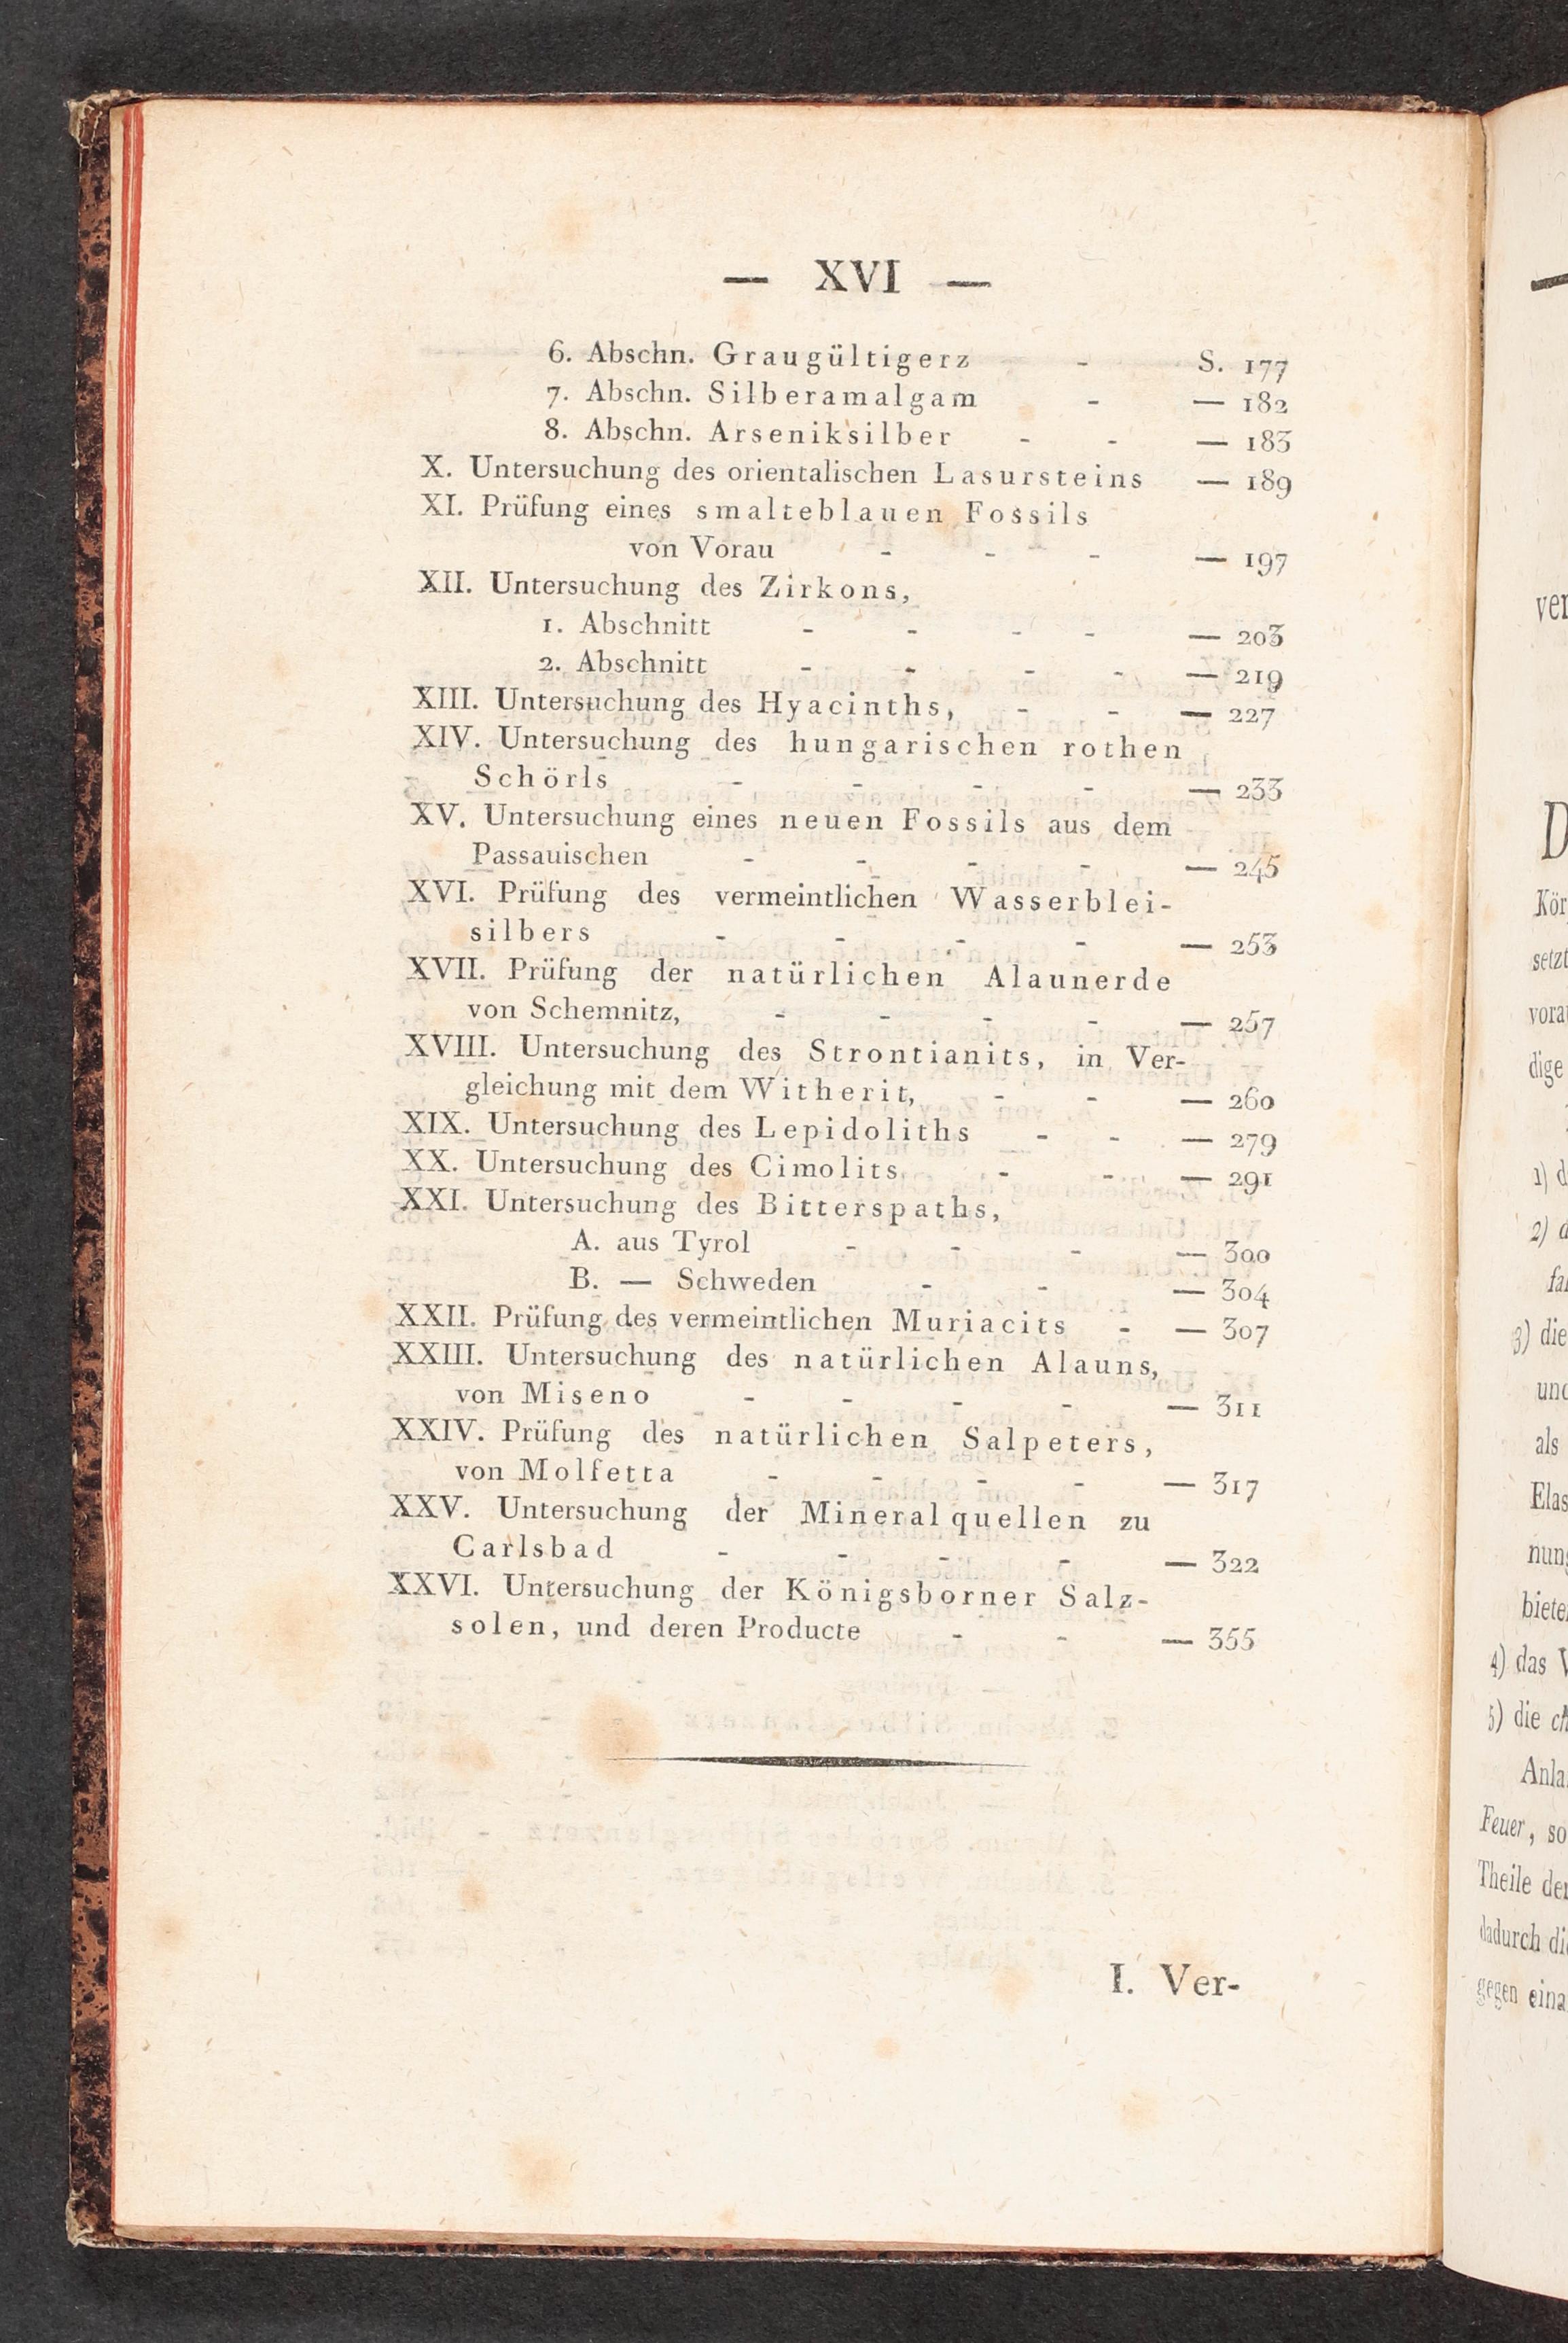 — XVI —
6. Abschn. Graugültigerz - S. 177
7. Abschn. Silberamalgam - — 182
8. Abschn. Arseniksilber - - — 183
X. Untersuchung des orientalischen Lasursteins — 189
XI. Prüfung eines smalteblauen Fossils
von Vorau - - - — 197
XII. Untersuchung des Zirkons,
1. Abschnitt - - - - — 203
2. Abschnitt - - - - — 219
XIII. Untersuchung des Hyacinths, - - — 227
XIV. Untersuchung des hungarischen rothen
Schörls - - - - — 233
XV. Untersuchung eines neuen Fossils aus dem
Passauischen - - - - — 245
XVI. Prüfung des vermeintlichen Wasserblei-
silbers - - - - — 253
XVII. Prüfung der natürlichen Alaunerde
von Schemnitz, - - - - — 257
XVIII. Untersuchung des Strontianits, in Ver-
gleichung mit dem Witherit, - - — 260
XIX. Untersuchung des Lepidoliths - - — 279
XX. Untersuchung des Cimolits - - — 291
XXI. Untersuchung des Bitterspaths,
A. aus Tyrol - - - — 300
B. — Schweden - - — 304
XXII. Prüfung des vermeintlichen Muriacits - — 307
XXIII. Untersuchung des natürlichen Alauns,
von Miseno - - - - — 311
XXIV. Prüfung des natürlichen Salpeters,
von Molfetta - - - - — 317
XXV. Untersuchung der Mineralquellen zu
Carlsbad - - - - — 322
XXVI. Untersuchung der Königsborner Salz-
solen, und deren Producte - - — 355
I. Ver-
ver
D
Kör
setzt
vora
dige
1) d
2) d
fa
3) die
und
als
Elas
nung
biete
4) das
5) die ch
Anla
Feuer, so
Theile der
dadurch di
gegen eina